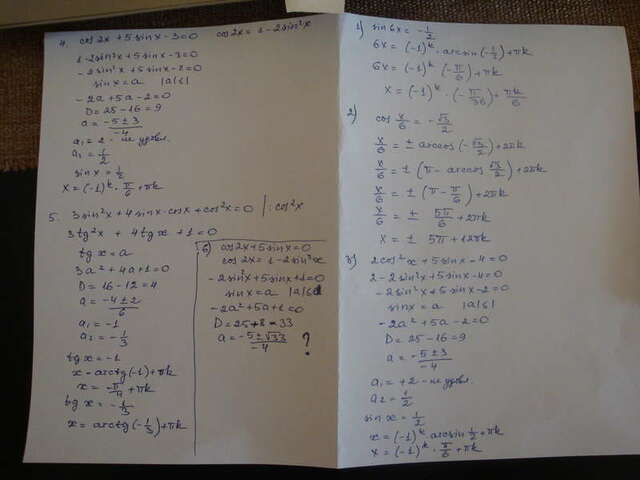 4. cos2x + 5sinx - 3 = 0    cos2x = 1 - 2sin²x
1 - 2sin²x + 5sinx - 3 = 0
- 2sin²x + 5sinx - 2 = 0
sinx = a  |a|≤1
- 2a + 5a - 2 = 0
D = 25 - 16 = 9
a = (-5 ± 3)/(-4)
a₁ = 2 - не удовл.
a₂ = 1/2
sinx = 1/2
x = (-1)ᵏ · π/6 + πk
5. 3sin²x + 4sinx·cosx + cos²x = 0 | : cos²x
3tg²x + 4tgx + 1 = 0
tgx = a
3a² + 4a + 1 = 0
D = 16 - 12 = 4
a = (-4 ± 2)/6
a₁ = -1
a₂ = -1/3
tgx = -1
x - arctg(-1) + πk
x = -π/4 + πk
tgx = -1/3
x = arctg(-1/3) + πk
6) cos2x + 5sinx = 0
cos2x = 1 - 2sin²x
- 2sin²x + 5sinx + 1 = 0
sinx = a  |a|≤1
- 2a² + 5a + 1 = 0
D = 25 + 8 = 33
a = (-5 ± √33)/(-4)  ?
1) sin6x = -1/2
6x = (-1)ᵏ · arcsin(-1/2) + πk
6x = (-1)ᵏ (-π/6) + πk
x = (-1)ᵏ · (-π/36) + πk/6
2) cos x/6 = -√3/2
x/6 = ± arccos(-√3/2) + 2πk
x/6 = ± (π - arccos √3/2) + 2πk
x/6 = ± (π - π/6) + 2πk
x/6 = ± 5π/6 + 2πk
x = ± 5π + 12πk
3) 2cos²x + 5sinx - 4 = 0
2 - 2sin²x + 5sinx - 4 = 0
- 2sin²x + 5sinx - 2 = 0
sinx = a  |a|≤1
- 2a² + 5a - 2 = 0
D = 25 - 16 = 9
a = (-5 ± 3)/(-4)
a₁ = +2 - не удовл.
a₂ = 1/2
sinx = 1/2
x = (-1)ᵏ arcsin 1/2 + πk
x = (-1)ᵏ · π/6 + πk